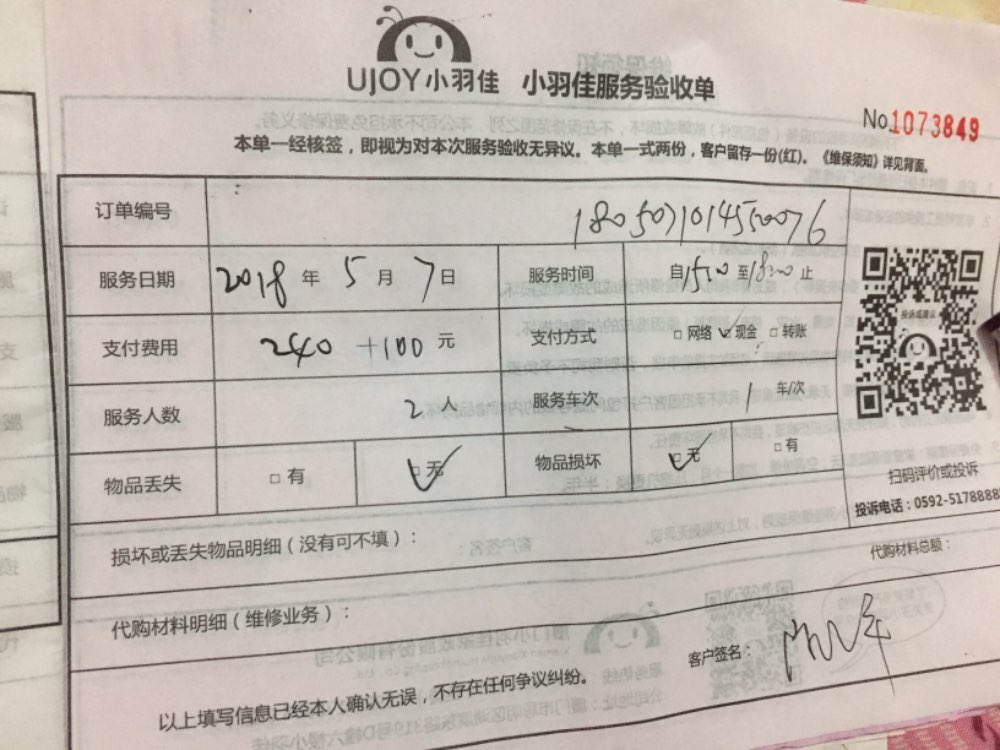 UJOY小羽佳 小羽佳服务验收单
No.1073849
本单一经核签，即视为对本次服务验收无异议。本单一式两份，客户留存一份(红)。《维保须知》详见背面。
订单编号 1805071014550076
服务日期 2018 年 5 月 7 日 服务时间 自1500至1800止
支付费用 240 +100 元 支付方式 □网络 ☑现金 □转账
服务人数 2 人 服务车次 1 车/次
物品丢失 □有 ☑无 物品损坏 ☑无 □有
投诉或建议
扫码评价或投诉
投诉电话：0592-5178888
损坏或丢失物品明细（没有可不填）：
代购材料总额：
代购材料明细（维修业务）：
客户签名：
以上填写信息已经本人确认无误，不存在任何争议纠纷。